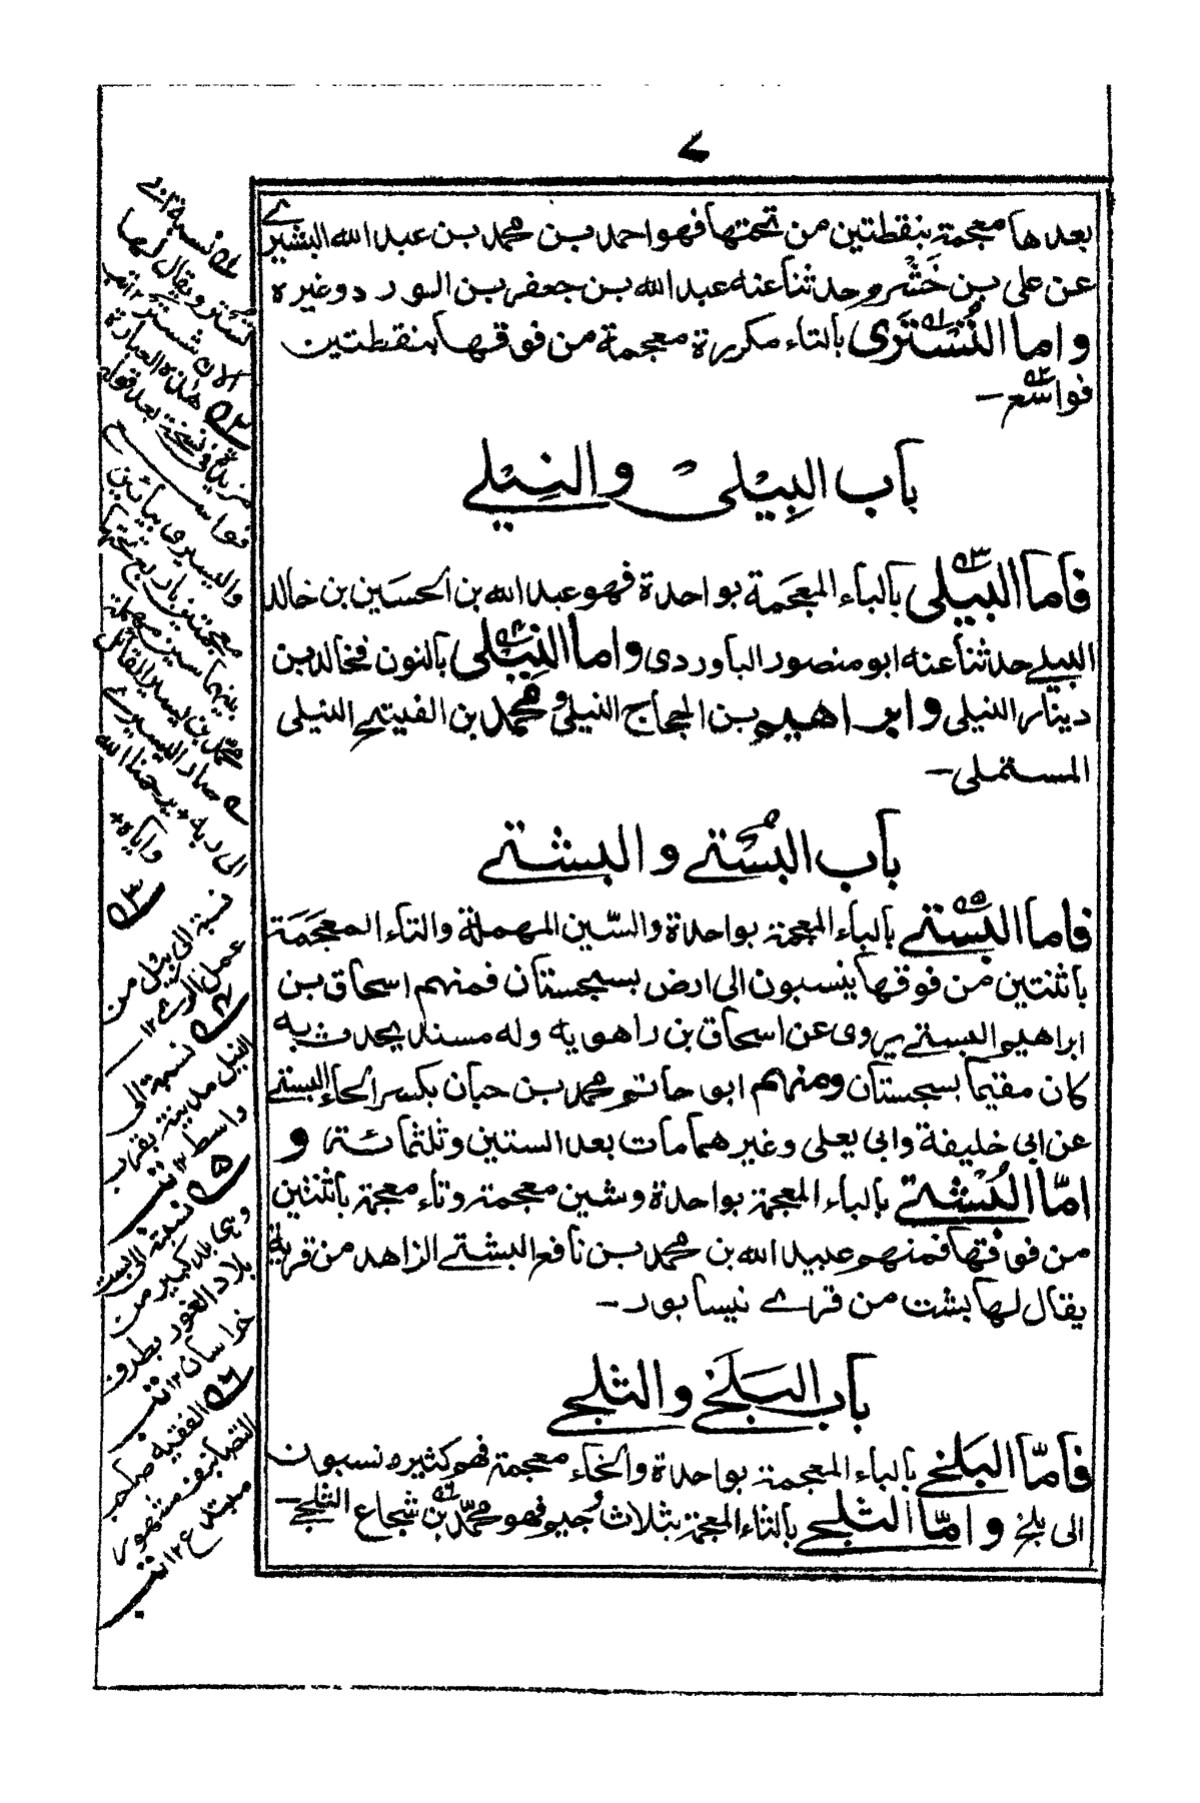 ٧
بعدها معجمة بنقطتين من تحتها فهو احمد بن محمد بن عبد الله البشيري
عن علي بن خشرم حدثنا عنه عبد الله بن جعفر بن الورد وغيره
واما التُسْتَرى بالتاء مكررة معجمة من فوقها بنقطتين
فواسع -
باب البِيْلى والنِيْلي
فاما البيلى بالباء المعجمة بواحدة فهو عبد الله بن الحسين بن خالد
البيلي حدثنا عنه ابو منصور الباوردى واما النيلى بالنون فخالد بن
دينار النيلى وابراهيم بن الحجاج النيلى ومحمد بن الفيتح النيلى
المستملى -
باب البُسْتي والبشتي
فاما البستي بالباء المعجمة بواحدة والسّين المهملة والتاء المعجمة
باثنتين من فوقها ينسبون الى ارض بسجستان فمنهم اسحاق بن
ابراهيم البستي يروى عن اسحاق بن راهويه وله مسند يحدث به
كان مقيما بسجستان ومنهم ابو حاتم محمد بن حبان بكسر الحاء البستي
عن ابي خليفة وابى يعلى وغيرهما مات بعد الستين وثلثمائة و
امّا البُشتي بالباء المعجمة بواحدة وشين معجمة وتاء معجمة باثنتين
من فوقها فمنهم عبيد الله بن محمد بن نافع البشتي الزاهد من قرية
يقال لها بشت من قرى نيسابور -
باب البَلَخي والثلجي
فامّا البَلخي بالباء المعجمة بواحدة والخاء معجمة فهم كثيره نسبون
الى بلخ وامّا الثلجي بالثاء المعجمة بثلاث وجيم فهو محمّد بن شجاع الثلجي -
۱ نسبة الى
تستر ويقال لها
الان ششتر ١٢ تب
۲ هذه العبارة
مزيدة فى نسخة بعد قوله
فواسع
واليسيرى بيائين
معجمتين باربع تحتها
بينهما سين مهملة
محمد بن يسير القائل
صار اليسيرى
الى ربه * يرحمنا الله
واياه *
۳
نسبة الى بيل من
عمل الرى ١٢
۴ نسبة الى
النيل مدينة بقرب
واسط ١٢ تب
۵ نسبة الى البست
وهى بلد كبير من
بلاد الغور بطرف
خراسان ١٢ تب
۶ الفقيه صاحب
التصانيف مشهور
مبتدع ١٢ تب